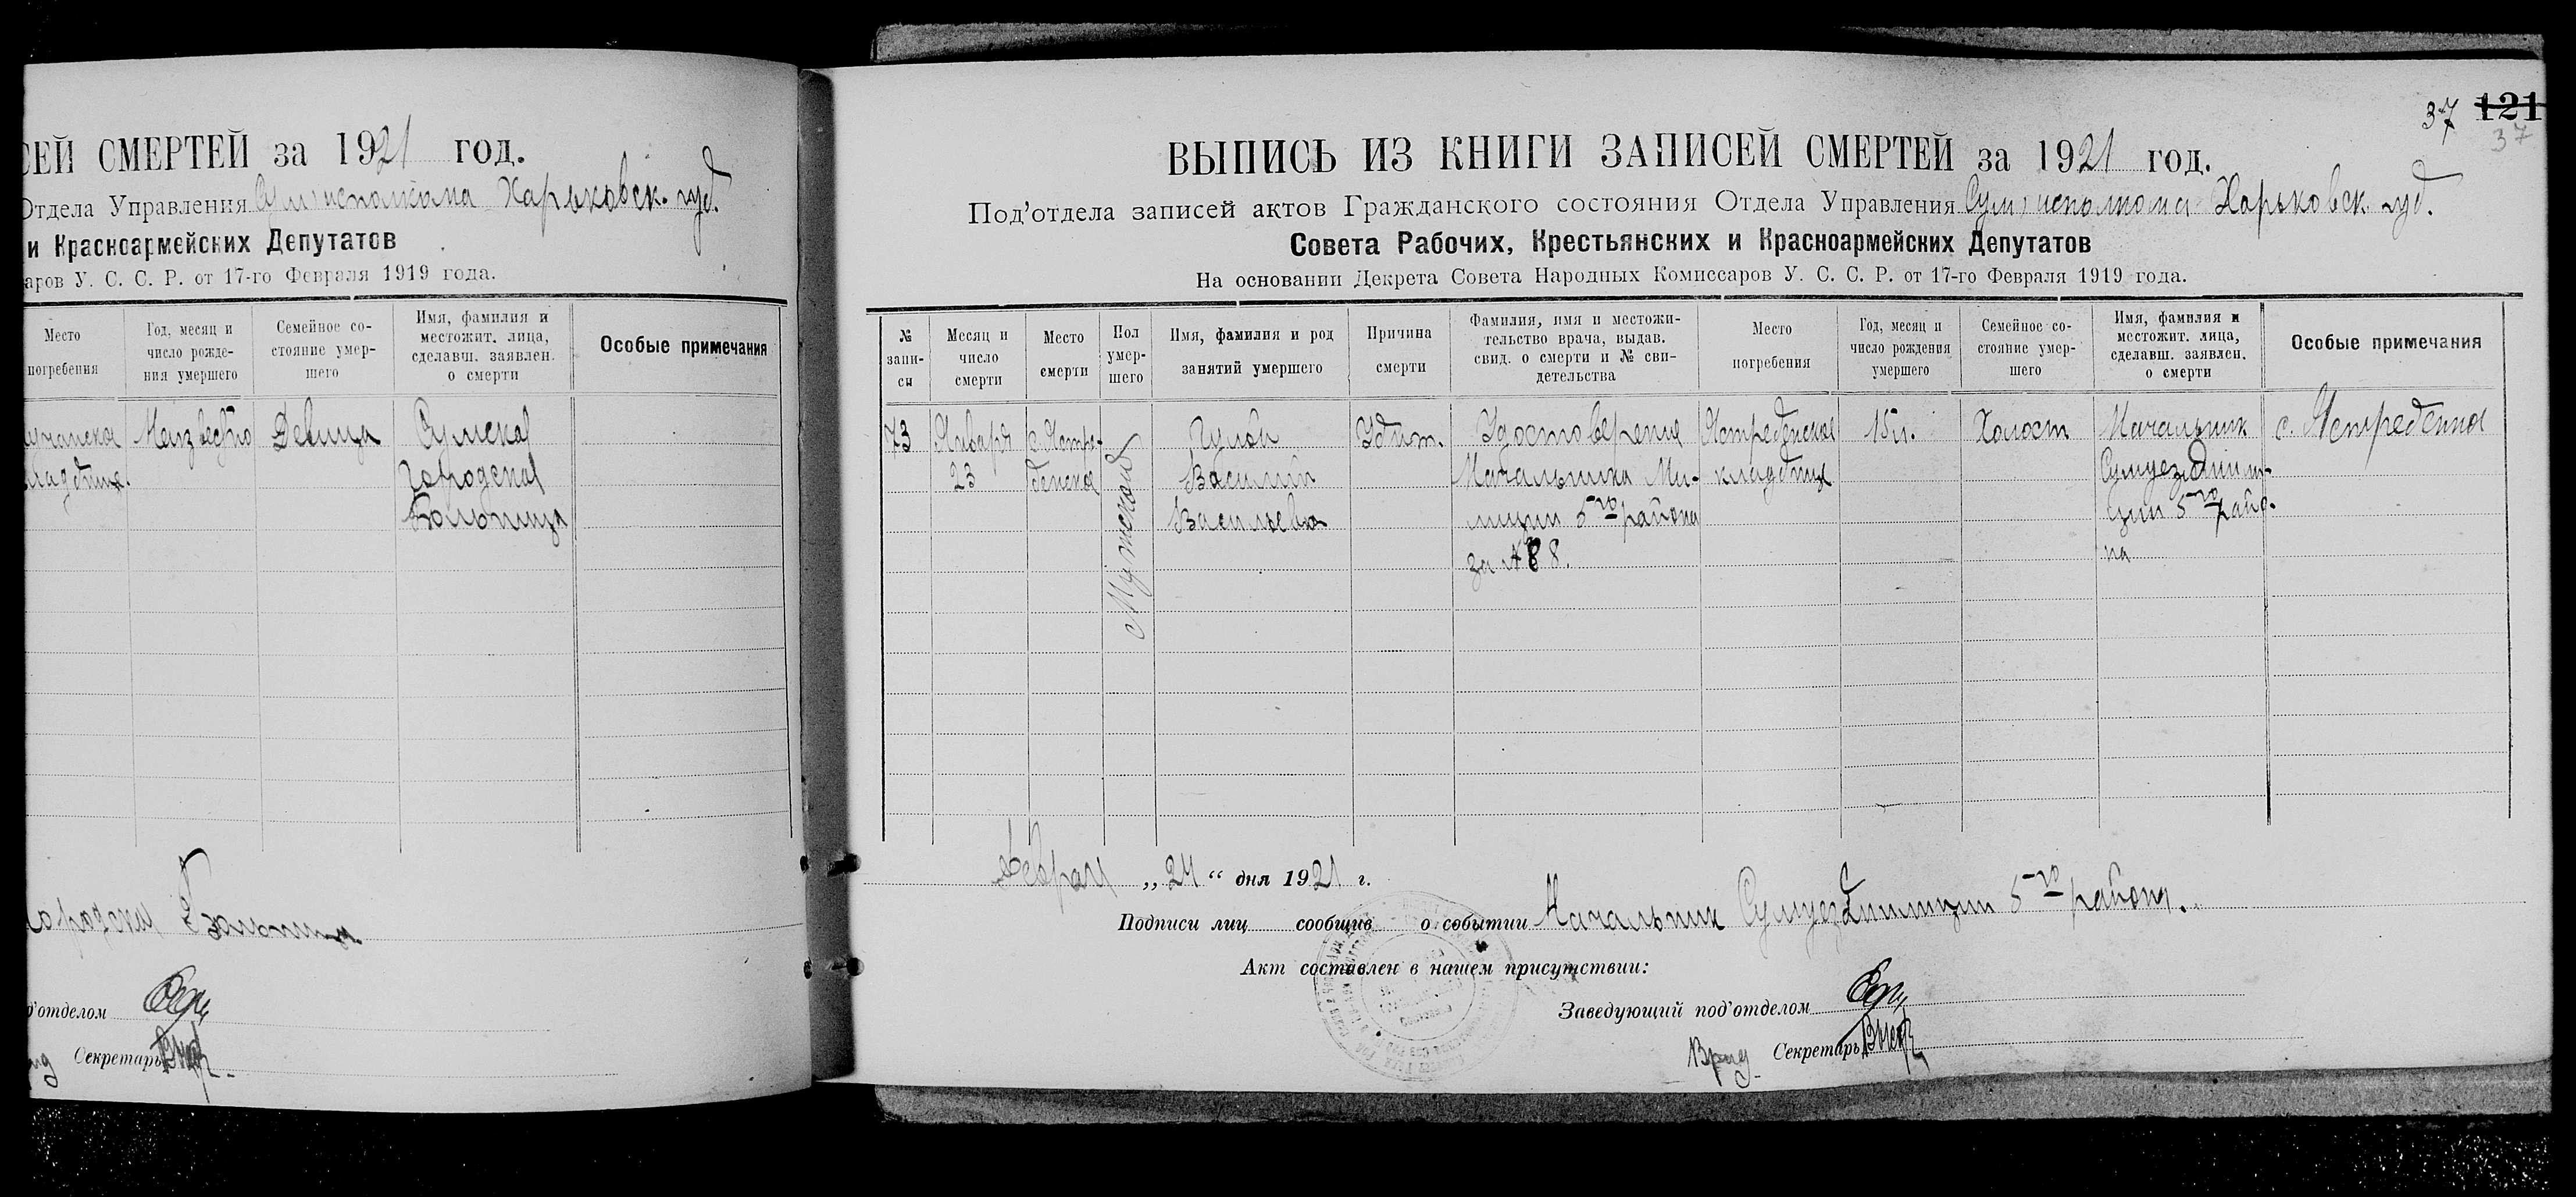 СЕЙ СМЕРТЕЙ за 1921 год.
Отдела Управления Сум. исполкома Харьковск. губ.
и Красноармейских Депутатов
аров У. С. С. Р. от 17-го Февраля 1919 года.
Место погребения
Год, месяц и число рождения умершего
Семейное состояние умершего
Имя, фамилия и местожит. лица, сделавш. заявлен. о смерти
Особые примечания
кладбище.
Неизвестно
Девица
Сумская
Городская
Больница
Городская Больница
д'отделом
Секретарь
37 121
37
ВЫПИСЬ ИЗ КНИГИ ЗАПИСЕЙ СМЕРТЕЙ за 1921 год.
Под'отдела записей актов Гражданского состояния Отдела Управления Сум. исполкома Харьковск. губ.
Совета Рабочих, Крестьянских и Красноармейских Депутатов
На основании Декрета Совета Народных Комиссаров У. С. С. Р. от 17-го Февраля 1919 года.
№ записи
Месяц и число смерти
Место смерти
Пол умершего
Имя, фамилия и род занятий умершего
Причина смерти
Фамилия, имя и местожительство врача, выдав. свид. о смерти и № свидетельства
Место погребения
Год, месяц и число рождения умершего
Семейное состояние умершего
Имя, фамилия и местожит. лица, сделавш. заявлен. о смерти
Особые примечания
73
Января
23
с. Ястребенска
Мужской
Гулой
Василий
Васильевич
Убит.
Удостоверение
Начальника Ми-
лиции 5го района
за № 88.
Ястребенское
кладбище
15 л.
Холост
Начальник
Сумуездмили-
ции 5го райо-
на
с. Ястребенка
Февраля „24“ дня 1921 г.
Подписи лиц сообщив о событии Начальник Сумуездмилиции 5го района.
Акт составлен в нашем присутствии:
Заведующий под'отделом
Врид Секретарь